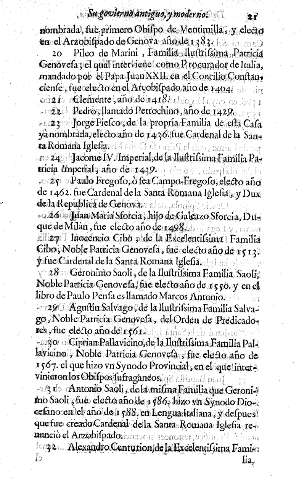 Su govierno antiguo, y moderno. 21
nombrada, fue primero Obispo de Ventimilla, y electo
en el Arzobispado de Genova año de 1383.
20 Pileo de Marini, Familia Ilustrissima Patricia
Genovesa; el qual interviene como Procurador de Italia,
mandado por el Papa Juan XXII. en el Concilio Constan-
ciense, fue electo en el Arzobispado año de 1404.
21 Clemente, año de 1418.
22 Pedro, llamado Petrochino, año de 1429.
23 Jorge Fiesco, de la propria Familia de esta Casa
ya nombrada, electo año de 1436. fue Cardenal de la San-
ta Romana Iglesia.
24 Jacome IV. Imperial, de la Ilustrissima Familia Pa-
tricia Imperial, año de 1439.
25 Paulo Fregoso, ò sea Campo-Fregoso, electo año
de 1462. fue Cardenal de la Santa Romana Iglesia, y Dux
de la Republica de Genova.
26 Juan Maria Sforcia, hijo de Galeazo Sforcia, Du-
que de Milan, fue electo año de 1498.
27 Inocencio Cibò, de la Excelentissima Familia
Cibò, Noble Patricia Genovesa, fue electo año de 1513.
y fue Cardenal de la Santa Romana Iglesia.
28 Geronimo Saoli, de la Ilustrissima Familia Saoli,
Noble Patricia Genovesa, fue electo año de 1550. y en el
libro de Paulo Pensa es llamado Marcos Antonio.
29 Agustin Salvago, de la Ilustrissima Familia Salva-
go, Noble Patricia Genovesa, del Orden de Predicado-
res, fue electo año de 1561.
30 Ciprian Pallavicino, de la Ilustrissima Familia Pal-
lavicino, Noble Patricia Genovesa, fue electo año de
1567. el que hizo vn Synodo Provincial, en el que inter-
vinieron los Obispos sufraganeos.
31 Antonio Saoli, de la misma Familia que Geroni-
mo Saoli, fue electo año de 1586. hizo vn Synodo Dio-
cesano en el año de 1588. en Lengua italiana, y despues
que fue creado Cardenal de la Santa Romana Iglesia re-
nunciò el Arzobispado.
32 Alexandro Centurion, de la Excelentissima Fami-
lia